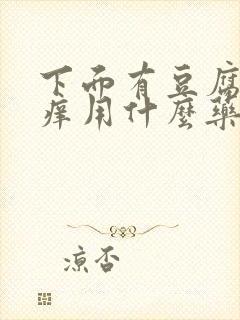 下面有豆腐
痒用什麼藥
凉否